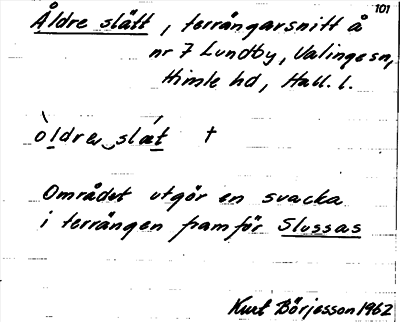 101
Äldre slätt, terrängavsnitt å
nr 7 Lundby, Valinge sn,
Himle hd, Hall. l.
òldrə‿slǽt †
Området utgör en svacka
i terrängen framför Slussas
Kurt Börjesson 1962